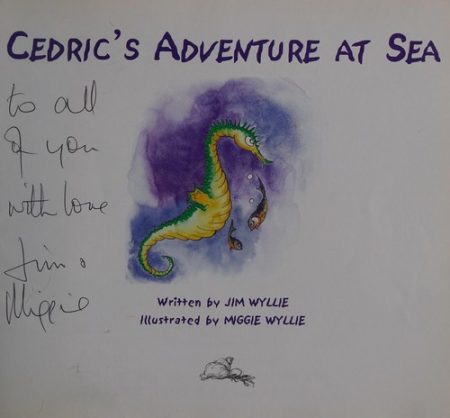 CEDRIC'S ADVENTURE AT SEA
to all
of you
with love
Jim &
Miggie
Written by JIM WYLLIE
Illustrated by MIGGIE WYLLIE